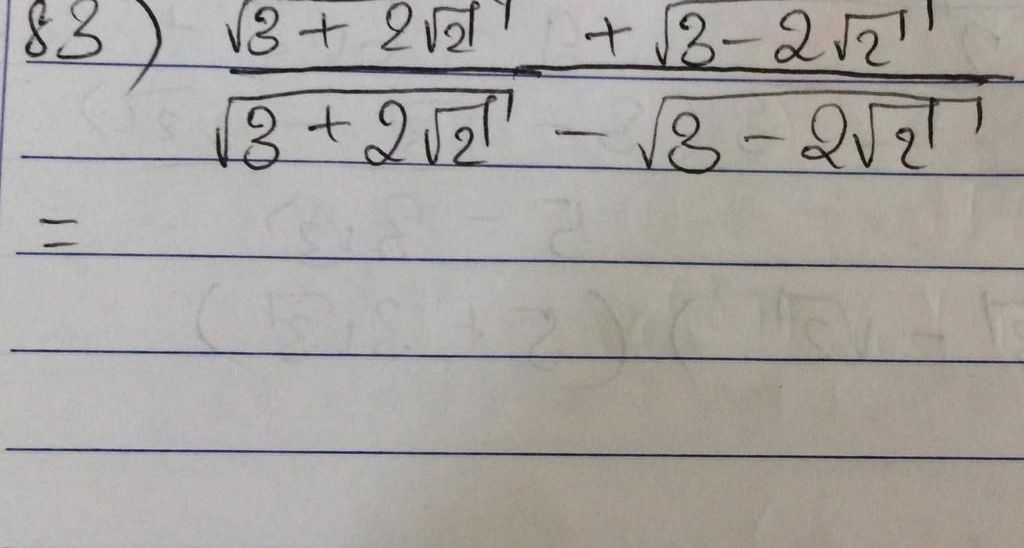 83) √(3 + 2√2) + √(3 - 2√2)
√(3 + 2√2) - √(3 - 2√2)
=